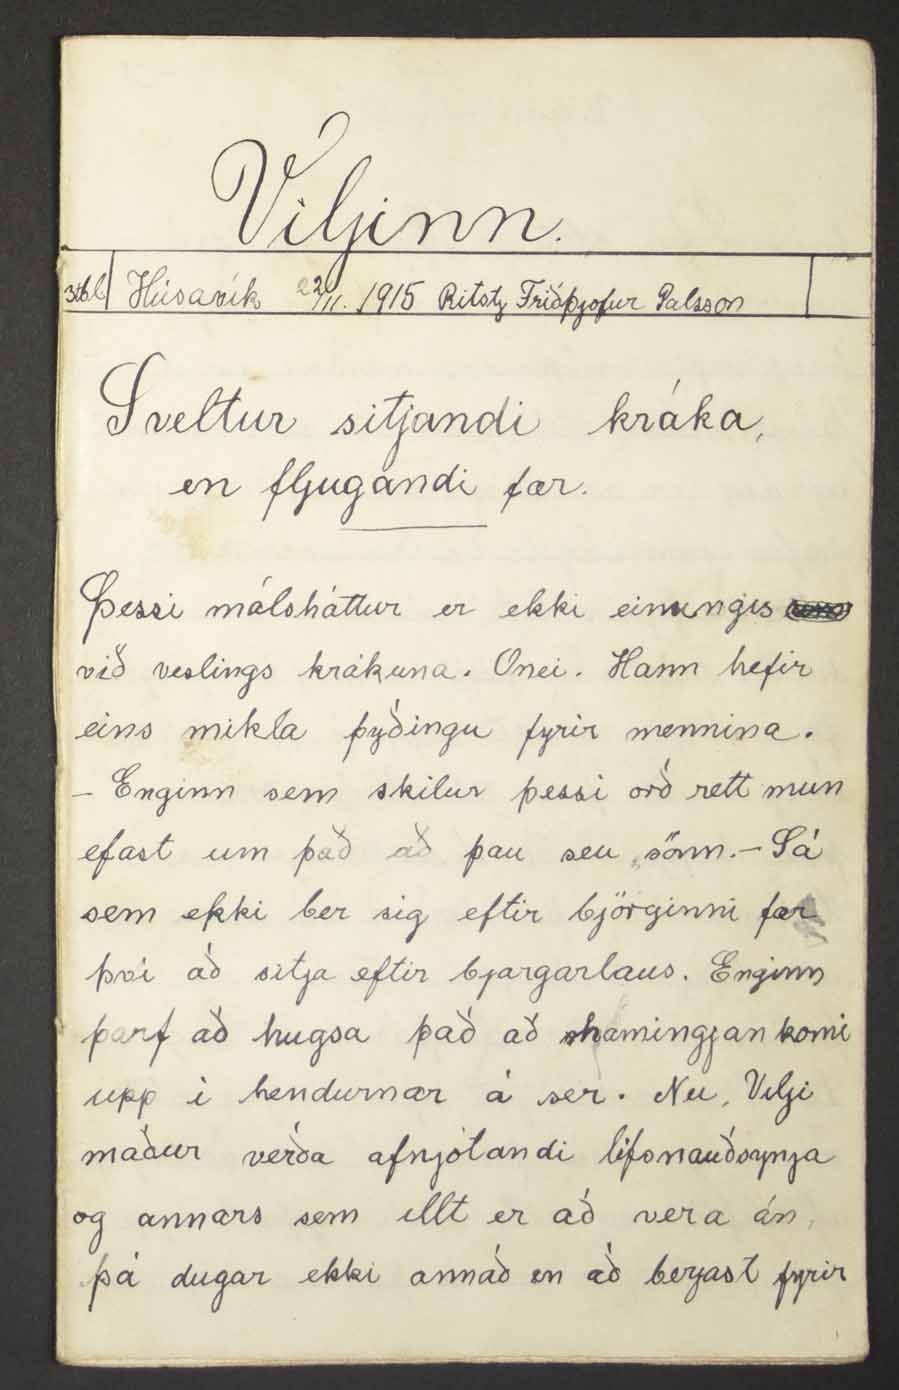 Viljinn.
3tbl Húsavík 22/11. 1915 Ritstj Friðþjofur Palsson
Sveltur sitjandi kráka,
en fljugandi fær.
Þessi málsháttur er ekki einungis
við veslings krákuna. Onei. Hann hefir
eins mikla þyðingu fyrir mennina.
- Enginn sem skilur þessi orð rett mun
efast um það að þau seu sönn. - Sá
sem ekki ber sig eftir björginni fær
því að sitja eftir bjargarlaus. Enginn
þarf að hugsa það að hamingjan komi
upp i hendurnar á ser. Nu, Vilji
maður verða afnjótandi lífsnauðsynja
og annars sem illt er að vera án,
þá dugar ekki annað en að berjast fyrir